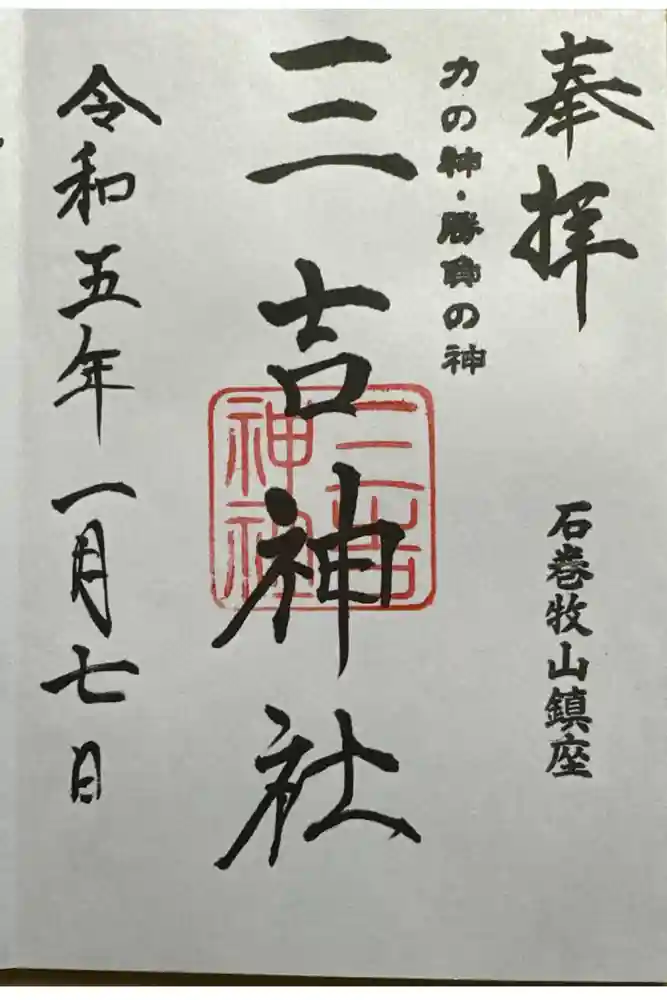 奉拝
石巻牧山鎮座
力の神・勝負の神
三吉神社
三吉
神社
令和五年一月七日